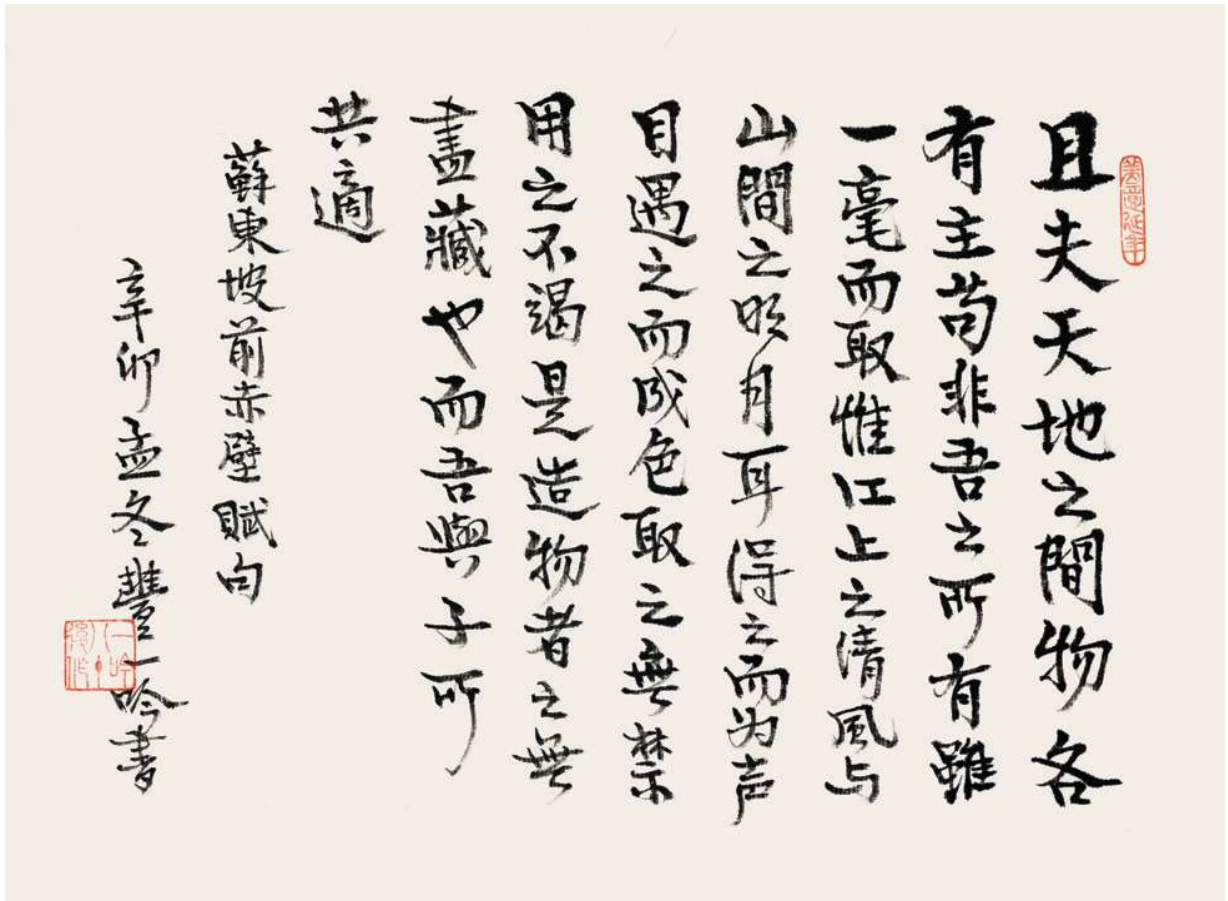 美意延年
且夫天地之間物各
有主苟非吾之所有雖
一毫而取惟江上之清風与
山間之明月耳得之而为声
目遇之而成色取之無禁
用之不竭是造物者之無
盡藏也而吾與子所
共適
蘇東坡前赤壁賦句
辛卯孟冬豐一吟書